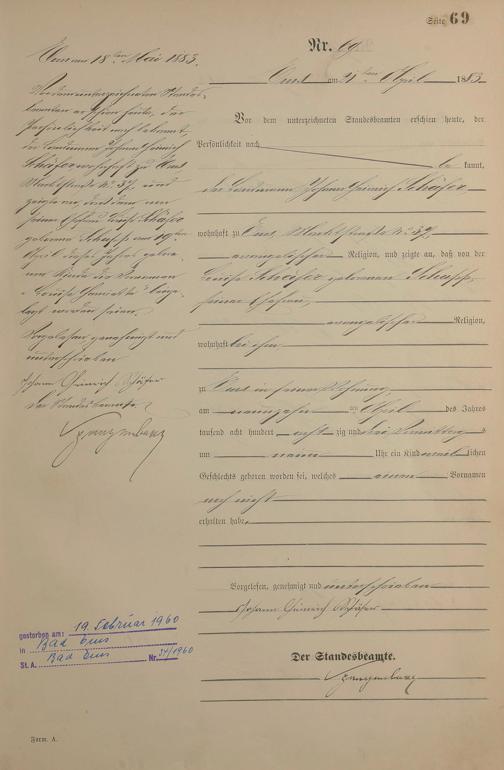 Seite 69
Nr. 69
Ems am 21ten April 1883
Vor dem unterzeichneten Standesbeamten erschien heute, der
Persönlichkeit nach
be kannt,
der Landmann Johann Heinrich Schäfer
wohnhaft zu Ems, Marktstraße No 37,
evangelischer Religion, und zeigte an, daß von der
Louise Schäfer geborenen Schupp
seiner Ehefrau
evangelischer Religion,
wohnhaft bei ihm
zu Ems in seiner Wohnung
am neunzehn ten April des Jahres
tausend acht hundert acht zig und drei Vormittags
um neun Uhr ein Kind weiblichen
Geschlechts geboren worden sei, welches einen Vornamen
noch nicht
erhalten habe.
Vorgelesen, genehmigt und unterschrieben
Johann Heinrich Schäfer
Der Standesbeamte.
Ems am 18ten Mai 1883.
Vor dem unterzeichneten Standes-
beamten erschien heute, der
Persönlichkeit nach bekannt,
der Landmann Johann Heinrich
Schäfer wohnhaft zu Ems,
Marktstraße No 37, und
zeigte an, daß dem von
seiner Ehefrau Louise Schäfer
geborene Schupp am 19ten
April dieses Jahres gebore-
nen Kinde die Vornamen
beige-
legt worden seien.
Vorgelesen, genehmigt und
unterschrieben
Johann Heinrich Schäfer
Der Standesbeamte.
gestorben am: 19. Februar 1960
in Bad Ems
St. A. Bad Ems Nr. /1960
Form. A.